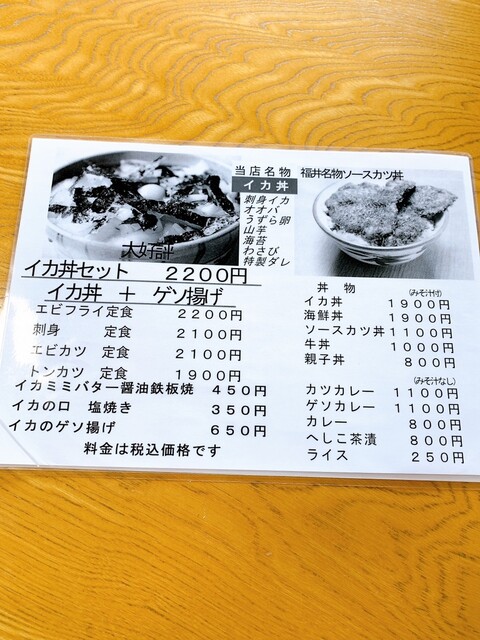 大好評
当店名物
イカ丼
刺身イカ
オオバ
うずら卵
山芋
海苔
わさび
特製ダレ
福井名物ソースカツ丼
イカ丼セット 2200円
イカ丼 + ゲソ揚げ
エビフライ定食 2200円
刺身 定食 2100円
エビカツ 定食 2100円
トンカツ 定食 1900円
イカミミバター醤油鉄板焼 450円
イカの口 塩焼き 350円
イカのゲソ揚げ 650円
料金は税込価格です
丼物 (みそ汁付)
イカ丼 1900円
海鮮丼 1900円
ソースカツ丼 1100円
牛丼 1000円
親子丼 800円
(みそ汁なし)
カツカレー 1100円
ゲソカレー 1100円
カレー 800円
へしこ茶漬 800円
ライス 250円